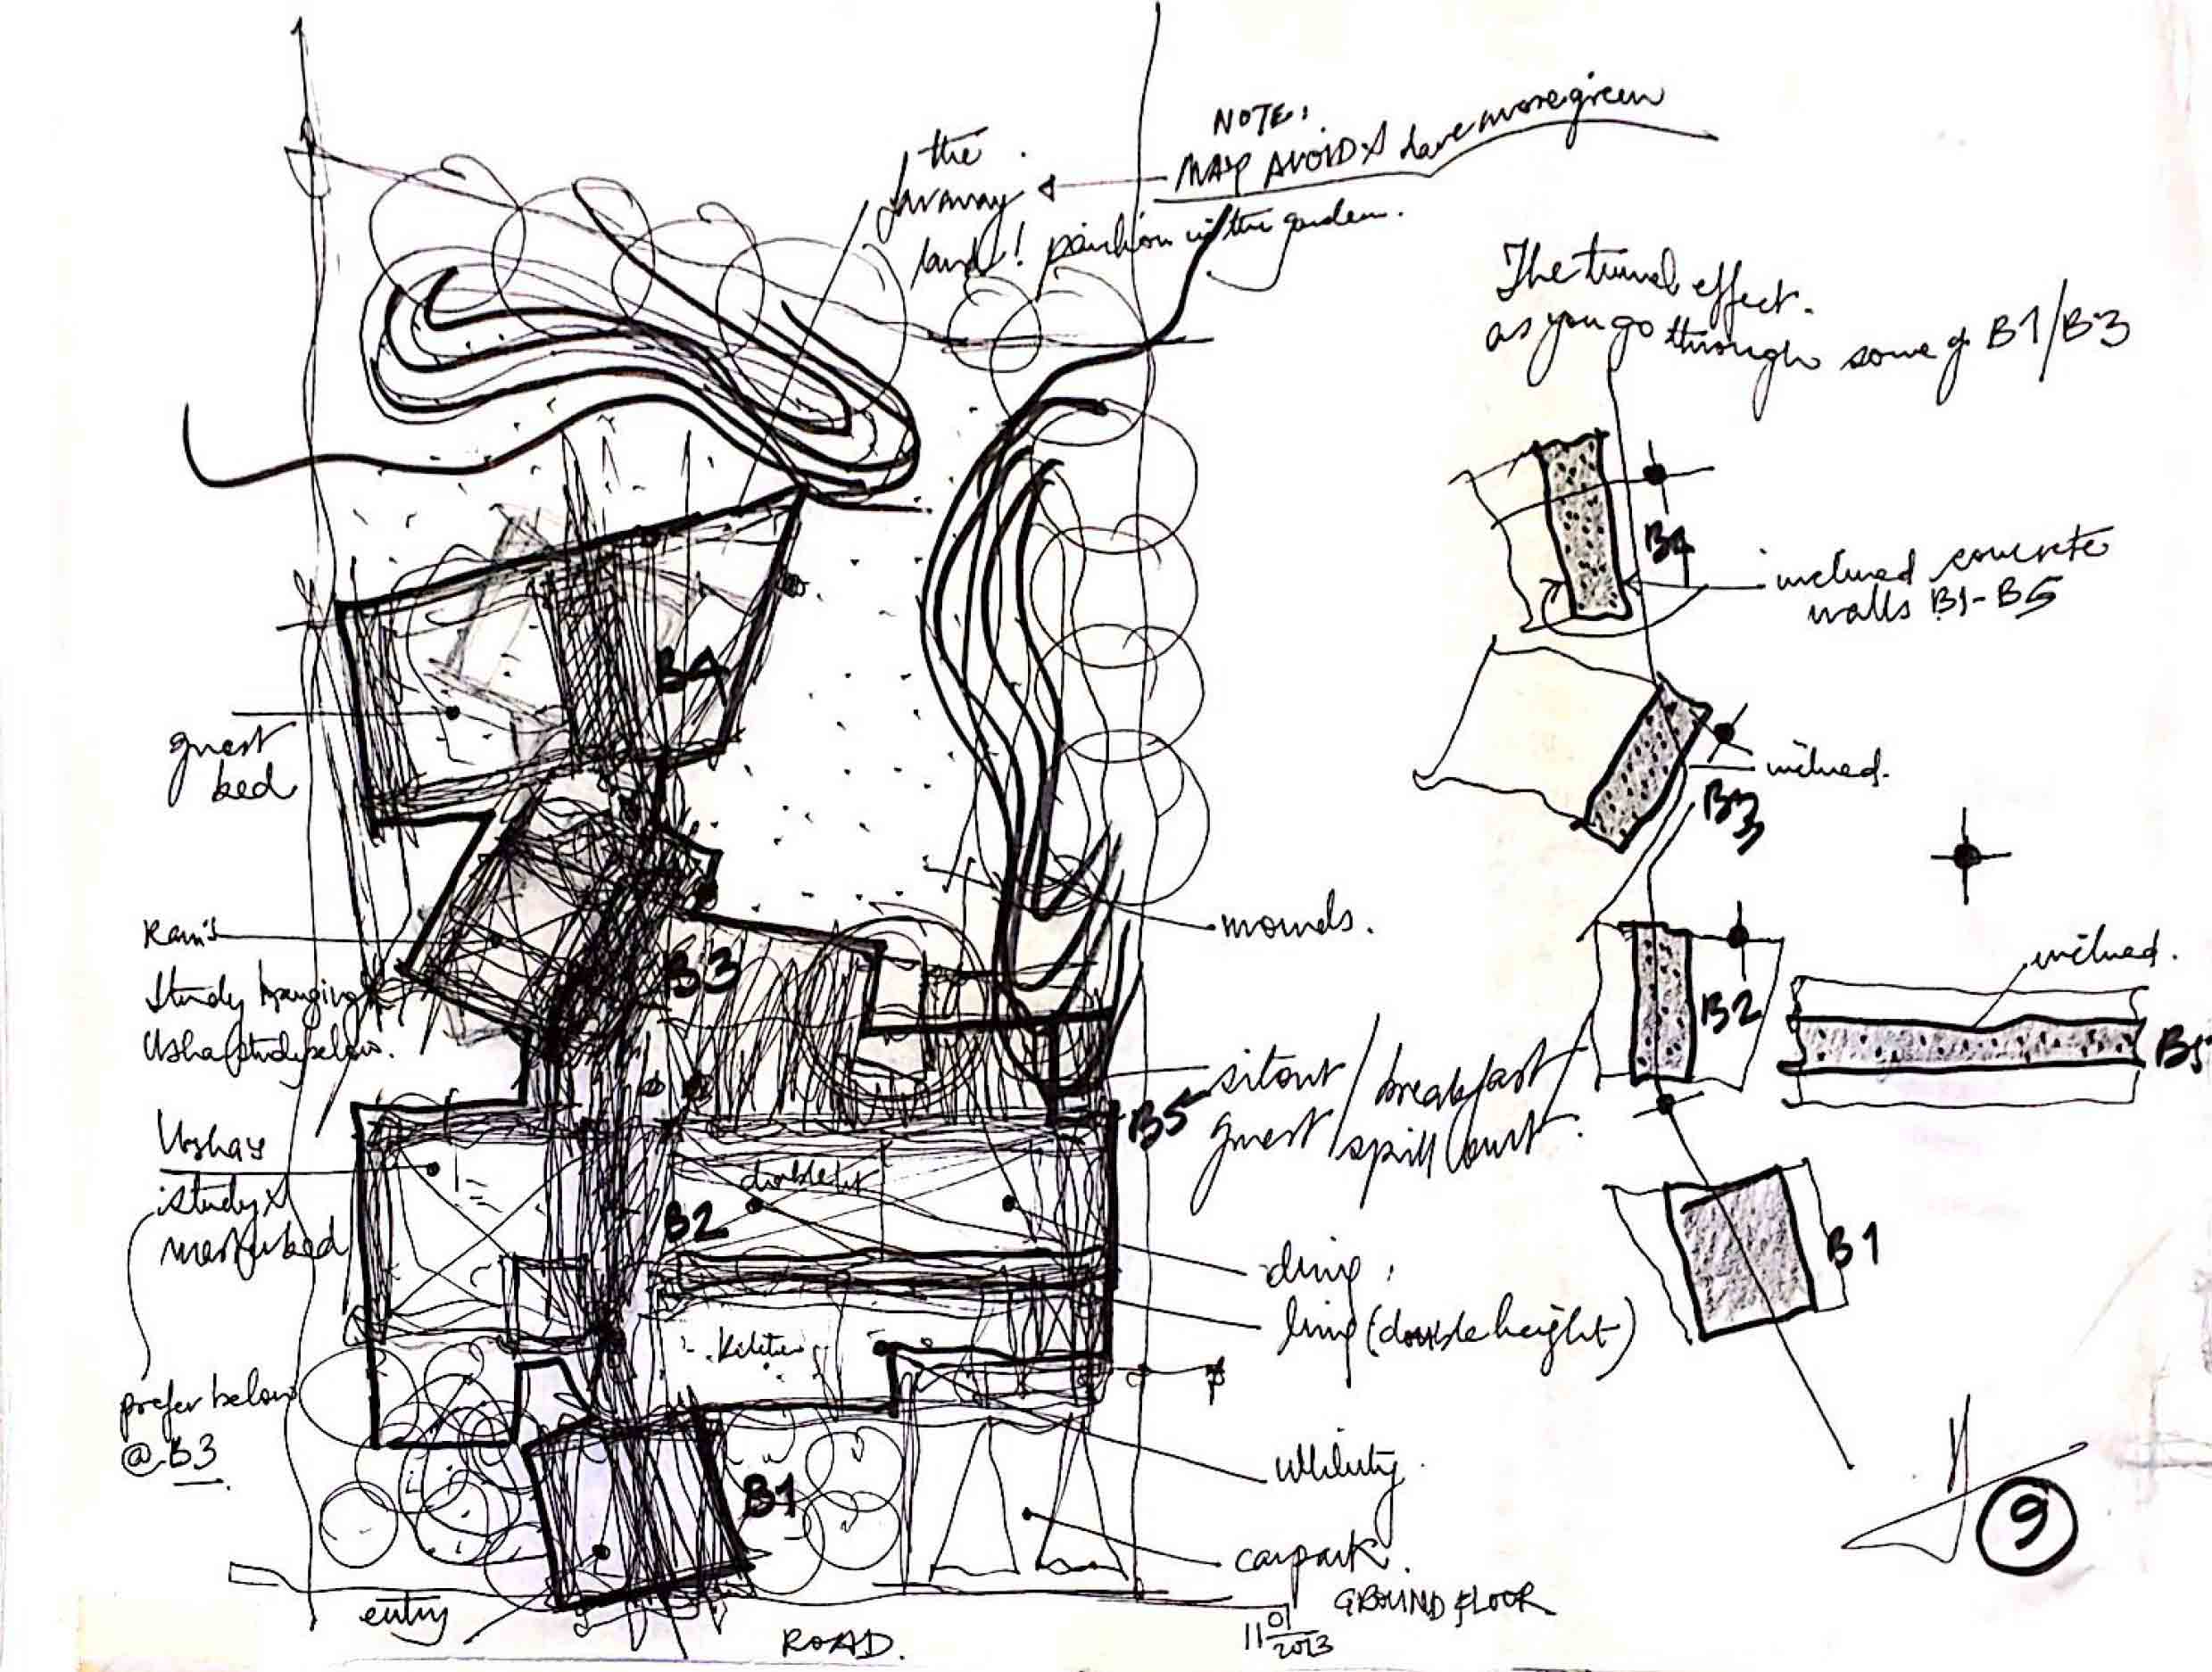 NOTE:
MAY AVOID & have more green
the
faraway
land! pavilion in the garden.
The tunnel effect.
as you go through some of B1/B3
B4
inclined concrete
walls B1-B5
inclined.
B3
B2
inclined.
B5
B1
guest
bed
B4
Ram's
Study hanging
Usha study below.
B3
mounds.
Usha's
study &
master bed
prefer below
@ B3
B5
sitout/breakfast/
guest/spill court.
double ht
B2
dining
living (double height)
Kitchen
utility.
B1
carpark.
GROUND FLOOR
entry
ROAD.
11 01
2013
9